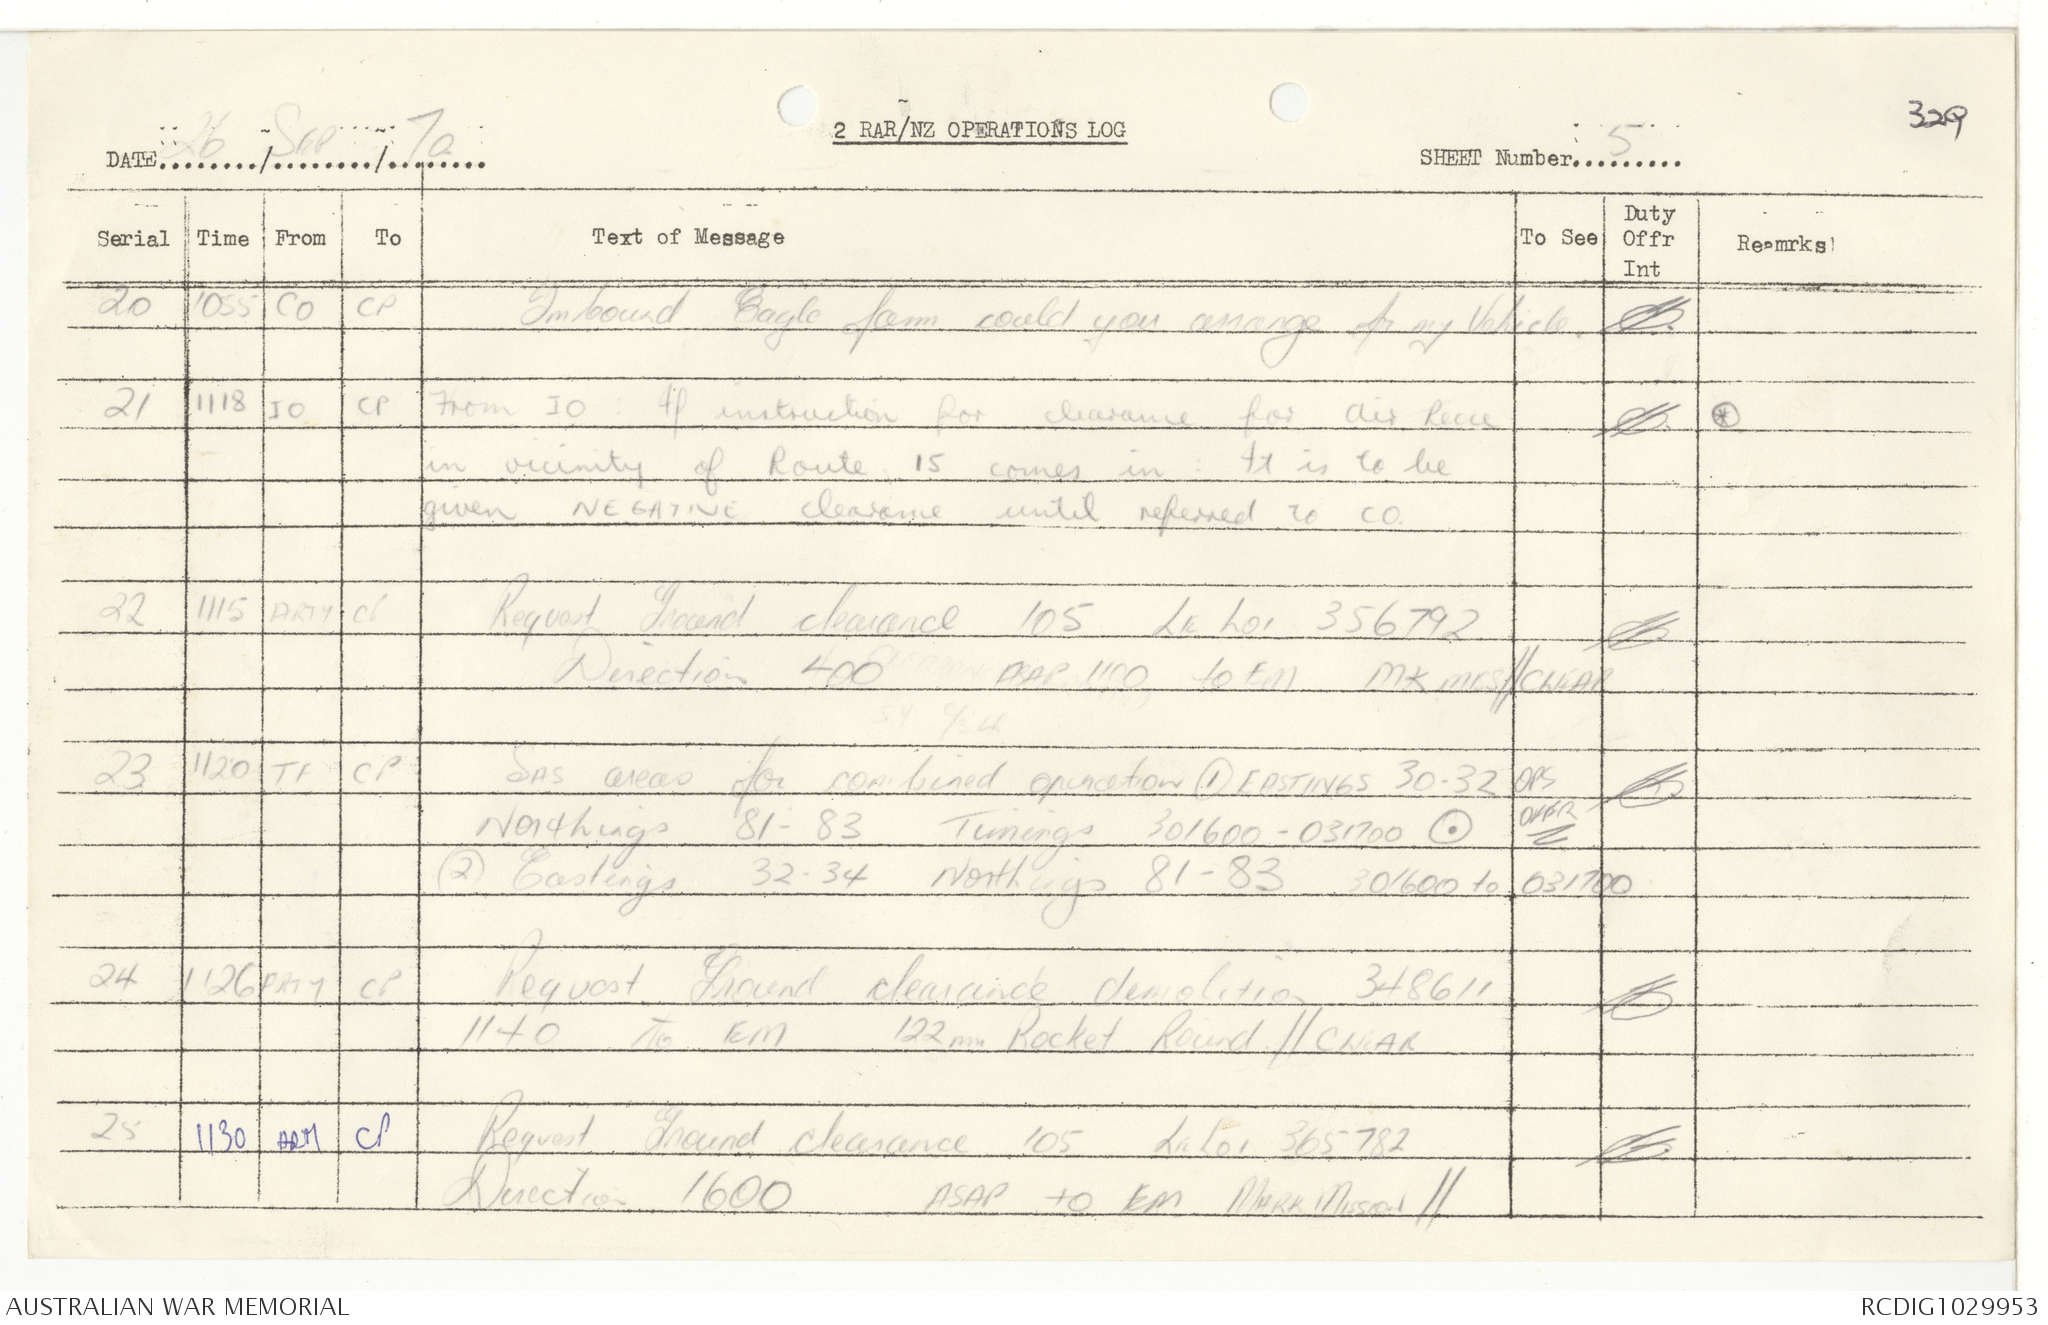 329
2 RAR/NZ OPERATIONS LOG
DATE 26 / Sep / 70
SHEET Number 5
Serial Time From To Text of Message To See Duty Offr Int Remarks
20 1055 CO CP Inbound Eagle farm could you arrange for my Vehicle.
21 1118 IO CP From IO: If instruction for clearance for air Recce
in vicinity of Route 15 comes in: It is to be
given NEGATIVE clearance until referred to CO.
22 1115 ARTY CP Request Ground clearance 105 Loc 356792
Direction 400 ASAP 1100 to EM MK MRS//CLEAR
23 1120 TF CP SAS areas for combined operation (1) EASTINGS 30-32 OPS
Northings 81-83 Timings 301600-031700 OFFR
(2) Eastings 32-34 Northings 81-83 301600 to 031700
24 1126 ARTY CP Request Ground clearance demolition 348611
1140 To EM 122mm Rocket Round // CLEAR
25 1130 ARTY CP Request Ground clearance 105 365782
Direction 1600 ASAP to EM MARK Mission //
AUSTRALIAN WAR MEMORIAL
RCDIG1029953